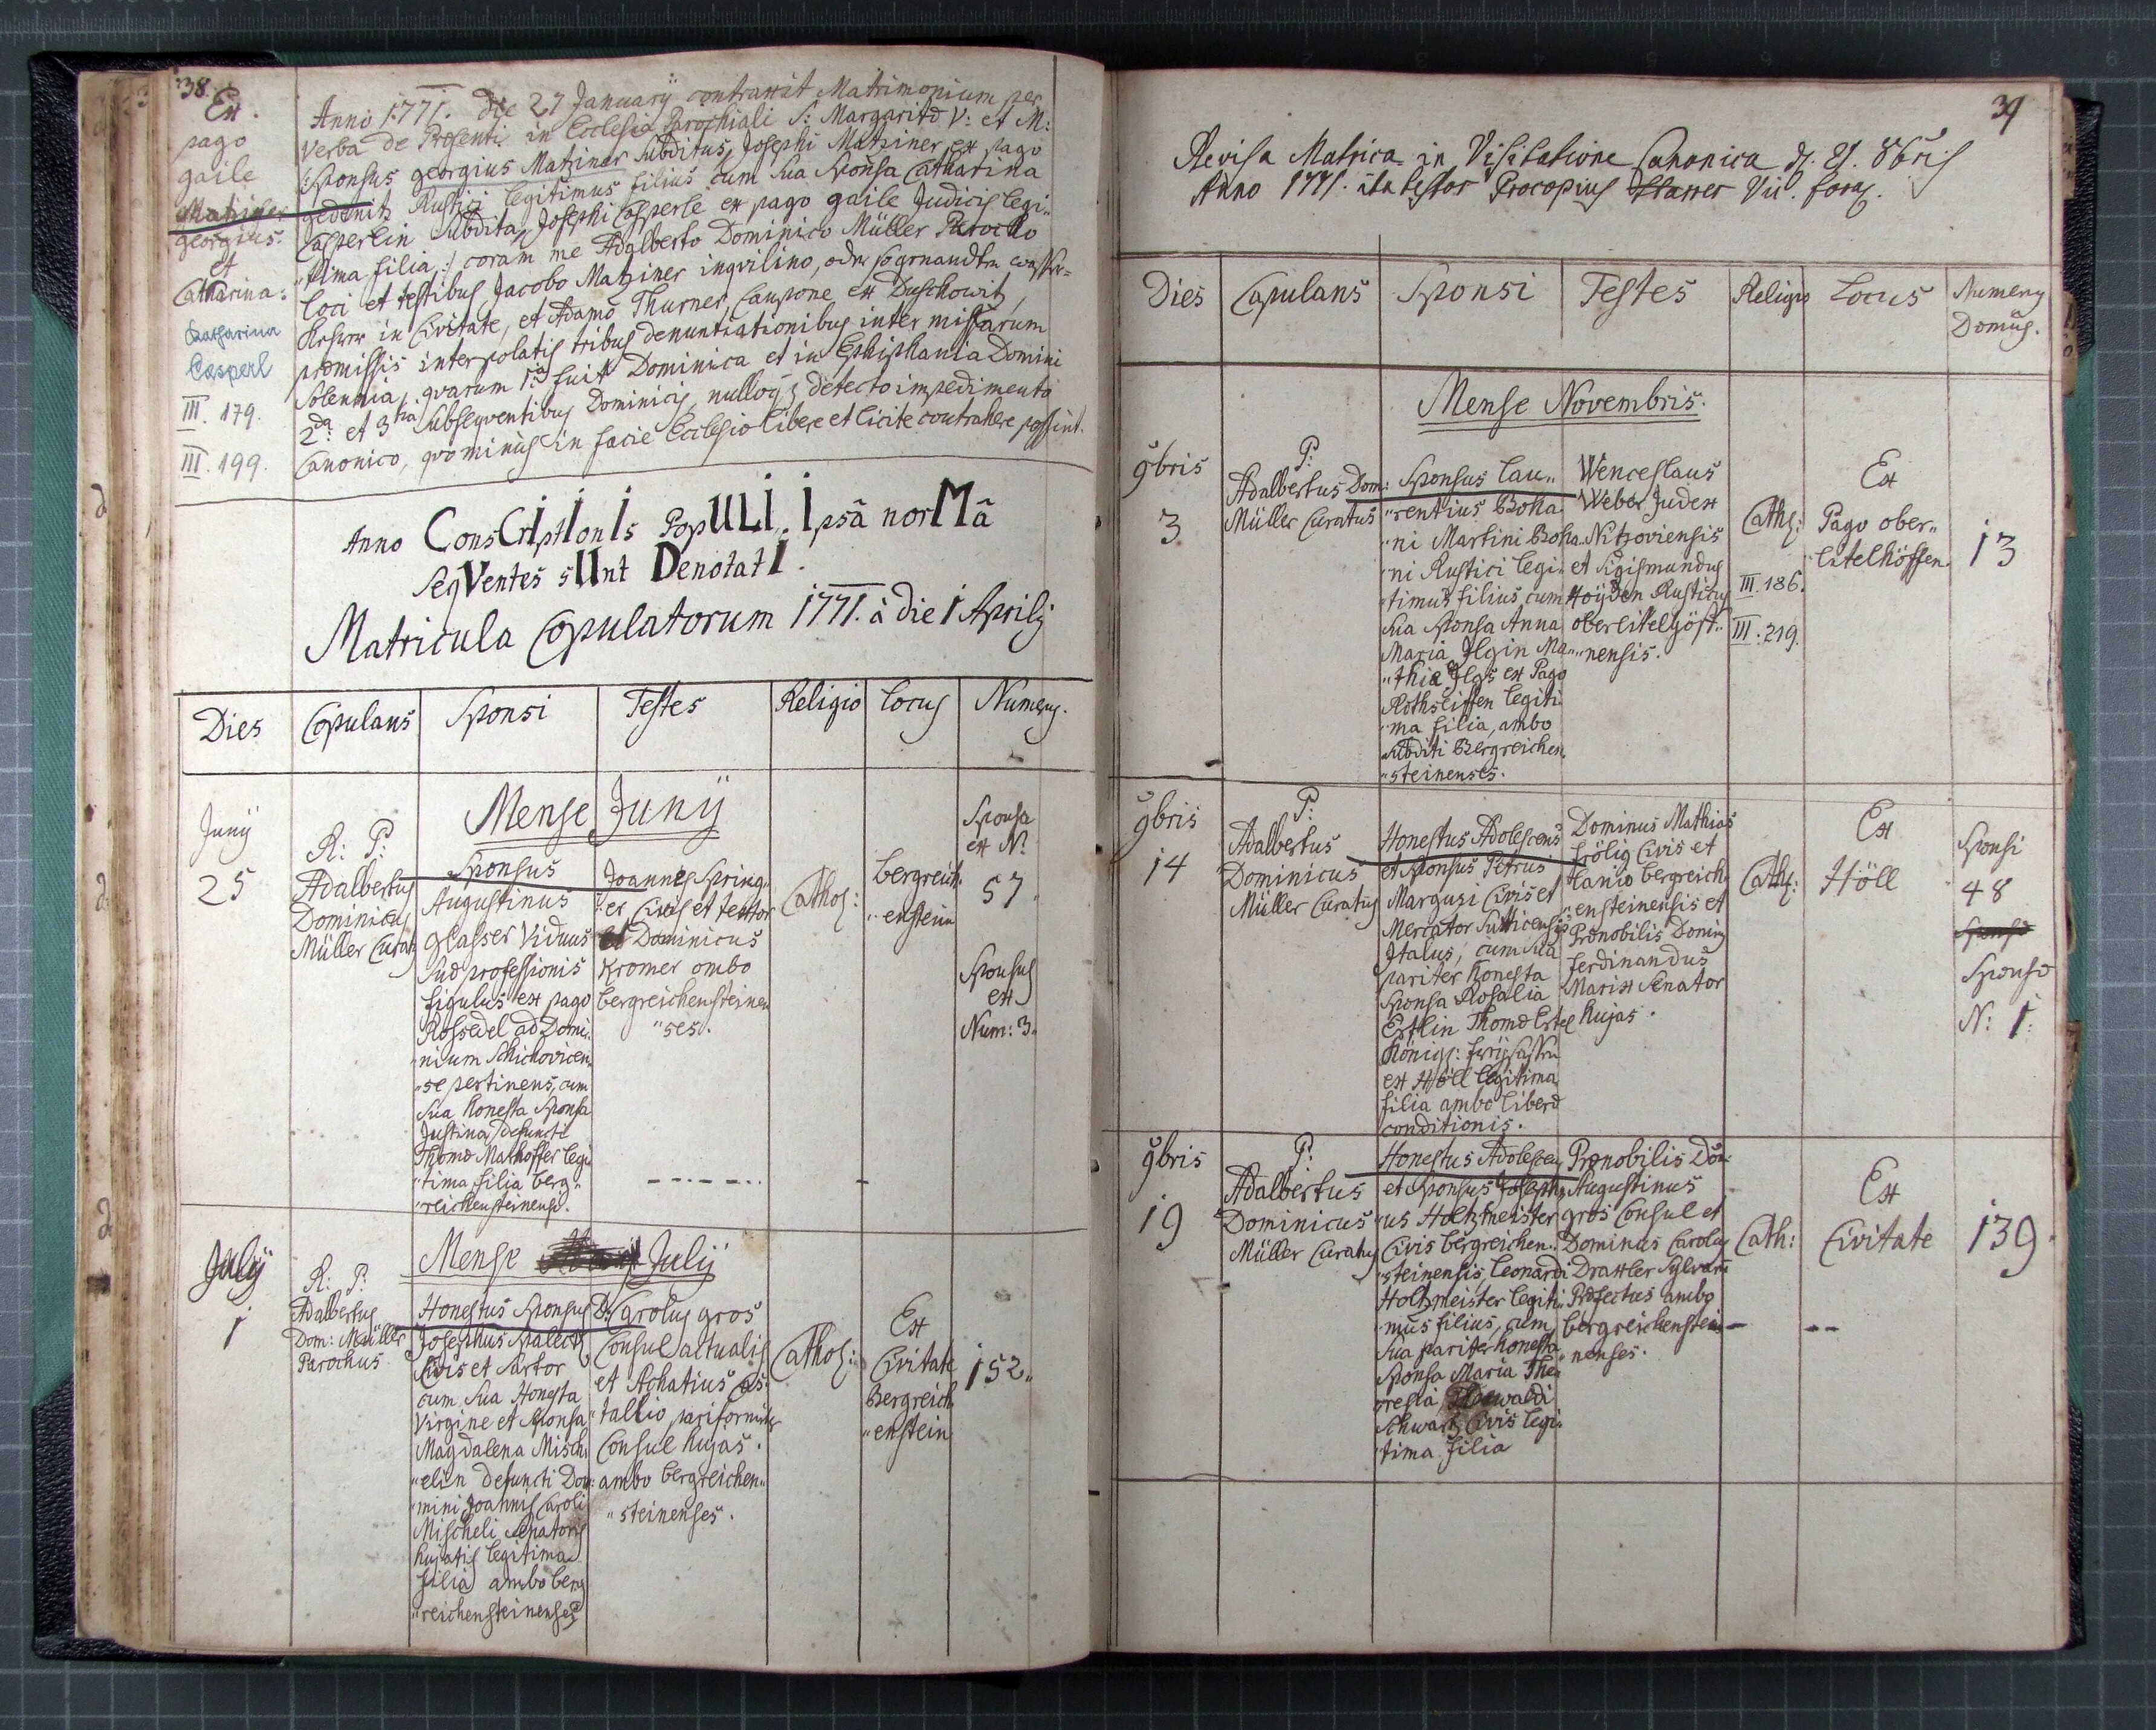 38.
Ex
pago
gaile
Matziner
georgius.
et
Catharina.
Katharina
Casperl
III. 179.
III. 199.
Anno 1771. die 27 Januarÿ contraxit Matrimonium per
verba de Præsenti in Ecclesia Parochiali S: Margaritæ V: et M:
Sponsus georgius Matziner subditus, Josephi Matziner ex pago
gedenitz Rustici legitimus filius cum sua Sponsa Catharina
Casperlin subdita, Josephi Casperle ex pago gaile Judicis legi„
„tima filia :/ coram me Adalberto Dominico Müller Parocho
loci et testibus Jacobo Matziner inqvilino, oder sogenandten
in Civitate, et Adamo Thurner, Caupone ex Duschowitz,
præmissis interpolatis tribus denuntiationibus inter missarum
solennia, qvarum 1ma fuit Dominica et in Ephiphania Domini
2da et 3tia subseqventibus Dominicis, nulloqz detecto impedimento
Canonico, qvominus in facie Ecclesiæ libere et licite contrahere possint.
Anno ConsCrIptIonIs PopULI, Ipsâ norMâ
seqVentes sUnt DenotatI.
Matricula Copulatorum 1771. à die 1 Aprilis
Dies Copulans Sponsi Testes Religio Locus Numerus.
Mense Junÿ
Junÿ
25
R: P:
Adalbertus
Dominicus
Müller Curat
Sponsus
Augustinus
glasser Viduus
suæ professionis
figulus ex pago
Rossedel ad Domi„
„nium Schichovicen„
„se pertinens, cum
sua honesta Sponsa
Justina, defuncti
Thomæ Mathoffer legi„
„tima filia berg„
„reichensteinensi.
Joannes Spring„
„er Civis et textor
et Dominicus
Kromer ambo
bergreichensteinen
„ses.
Cathol:
bergreich„
„enstein
Sponsa
ex No
57.
Sponsus
ex
Num: 3.
Mense Julÿ
Julÿ
1
R: P:
Adalbertus
Dom: Müller
Parochus
Honestus Sponsus
Josephus
Civis et Sartor
cum sua Honesta
Virgine et Sponsa
Magdalena Misch„
„elin defuncti Dom:
„mini Joannis Caroli
Mischeli Senatoris
hujatis legitima
filia ambo berg
„reichensteinenses
D: Carolus gros
Consul actualis
et Achatius Cas„
„tallio pariformiter
Consul hujas.
ambo bergreichen„
„steinenses.
Cathol:
Ex
Civitate
Bergreich„
„enstein
152.
39
Revisa Matrica in Visitatione Canonica d. 21. 8bris
Anno 1771. ita testor Procopius Vic. forax.
Dies Copulans Sponsi Testes Religio Locus Numerus
Domûs.
Mense Novembris.
9bris
3
P:
Adalbertus Dom:
Müller Curatus
Sponsus Lau„
„rentius Boha
„ni Martini Boha
„ni Rustici legi„
„timus filius cum
sua Sponsa Anna
Maria Ilgin Ma„
„thiæ Ilgs ex Pago
Rothseiffen legiti„
„ma filia, ambo
subditi Bergreichen„
„steinenses.
Wenceslaus
Weber Judex
Nitzoviensis
et Sigismundus
Hoÿden Rusticus
oberlitelhöff„
„nensis.
Cath:
III. 186.
III. 219.
Ex
Pago ober„
litelhöffen
13
9bris
14
P:
Adalbertus
Dominicus
Müller Curatus
Honestus Adolescens
et Sponsus Petrus
Margusi Civis et
Mercator Sutticensis
Italus, cum sua
pariter honesta
Sponsa Rosalia
Estlin Thomæ Estel
Königl: freÿsassen
ex Höll legitima
filia ambo liberæ
conditionis.
Dominus Mathias
frölig Civis et
Lanio bergreich„
„ensteinensis et
Prænobilis Dominus
ferdinandus
Marix Senator
hujas.
Cath:
Ex
Höll
Sponsi
48
Sponsæ
Sponsæ
N: 1.
9bris
19
P:
Adalbertus
Dominicus
Müller Curatus
Honestus Adolescens
et Sponsus Joseph„
„us Holtzmeister
Civis bergreichen„
„steinensis, Leonardi
Holtzmeister legiti„
„mus filius, cum
sua pariter honesta
Sponsa Maria The„
„resia
Schwartz Civis legi„
„tima filia
Prænobilis Dom:
Augustinus
gros Consul et
Dominus Carolus
Draxler Sylvarum
Præfectus ambo
bergreichenstei„
„nenses.
Cath:
Ex
Civitate
139.